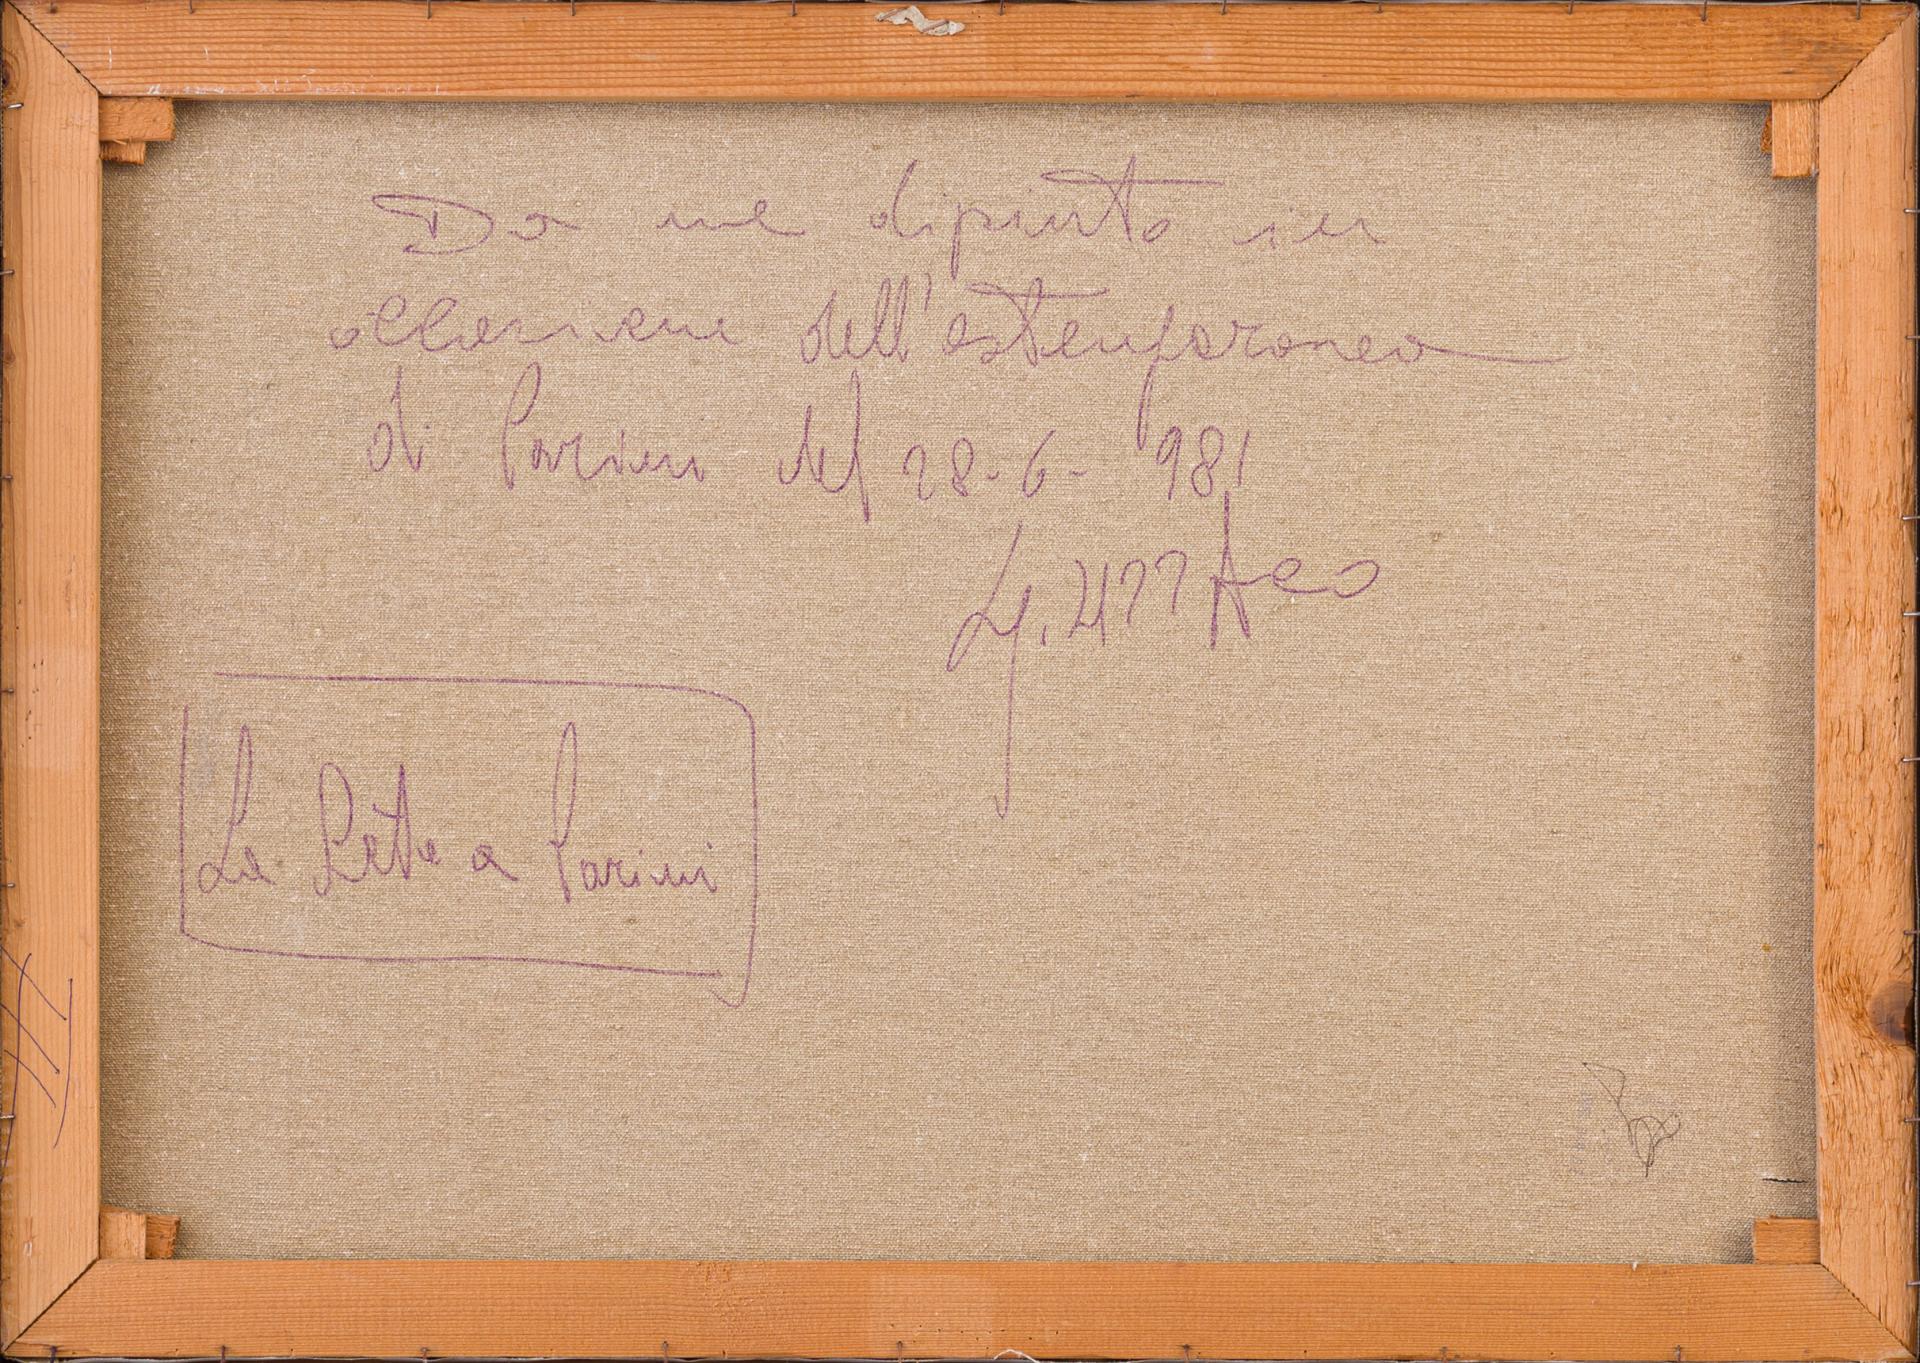 Da me dipinto in
occasione dell'estemporanea
di Parini del 28-6-1981
La Rete a Parini